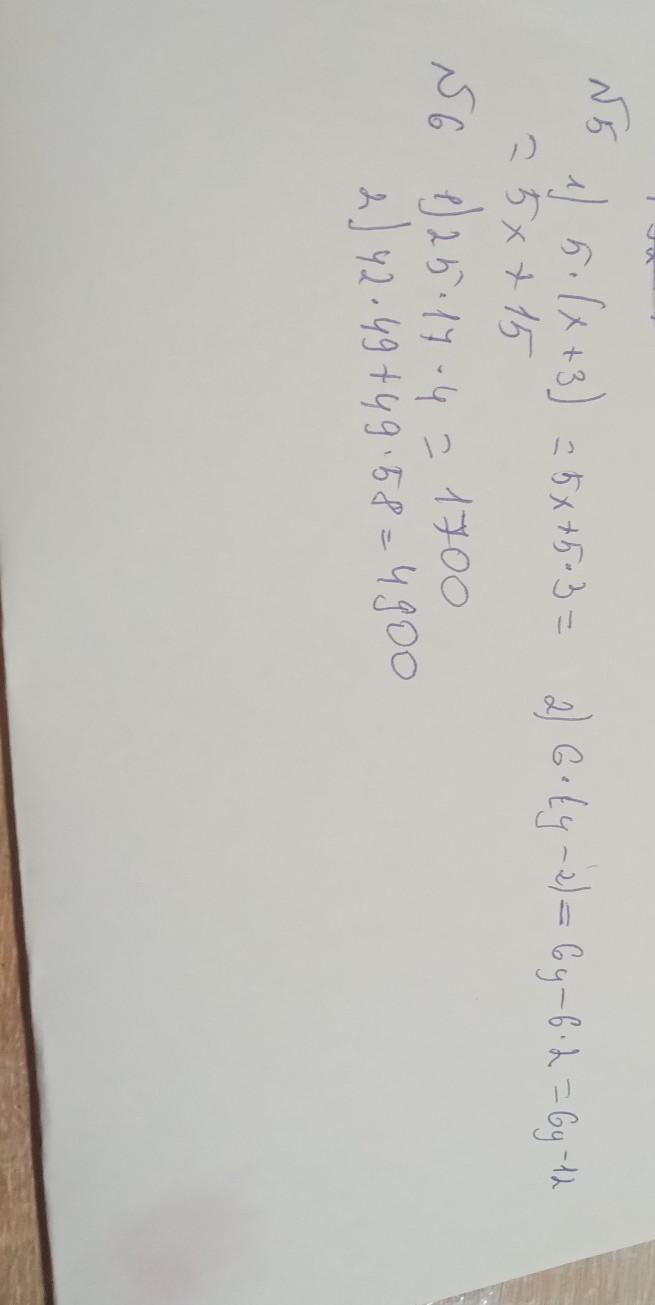 №5 1) 5·(x+3) = 5x+5·3= 2) 6·(y-2)=6y-6·2=6y-12
= 5x+15
№6 1) 25·17·4 = 1700
2) 42·49+49·58=4900